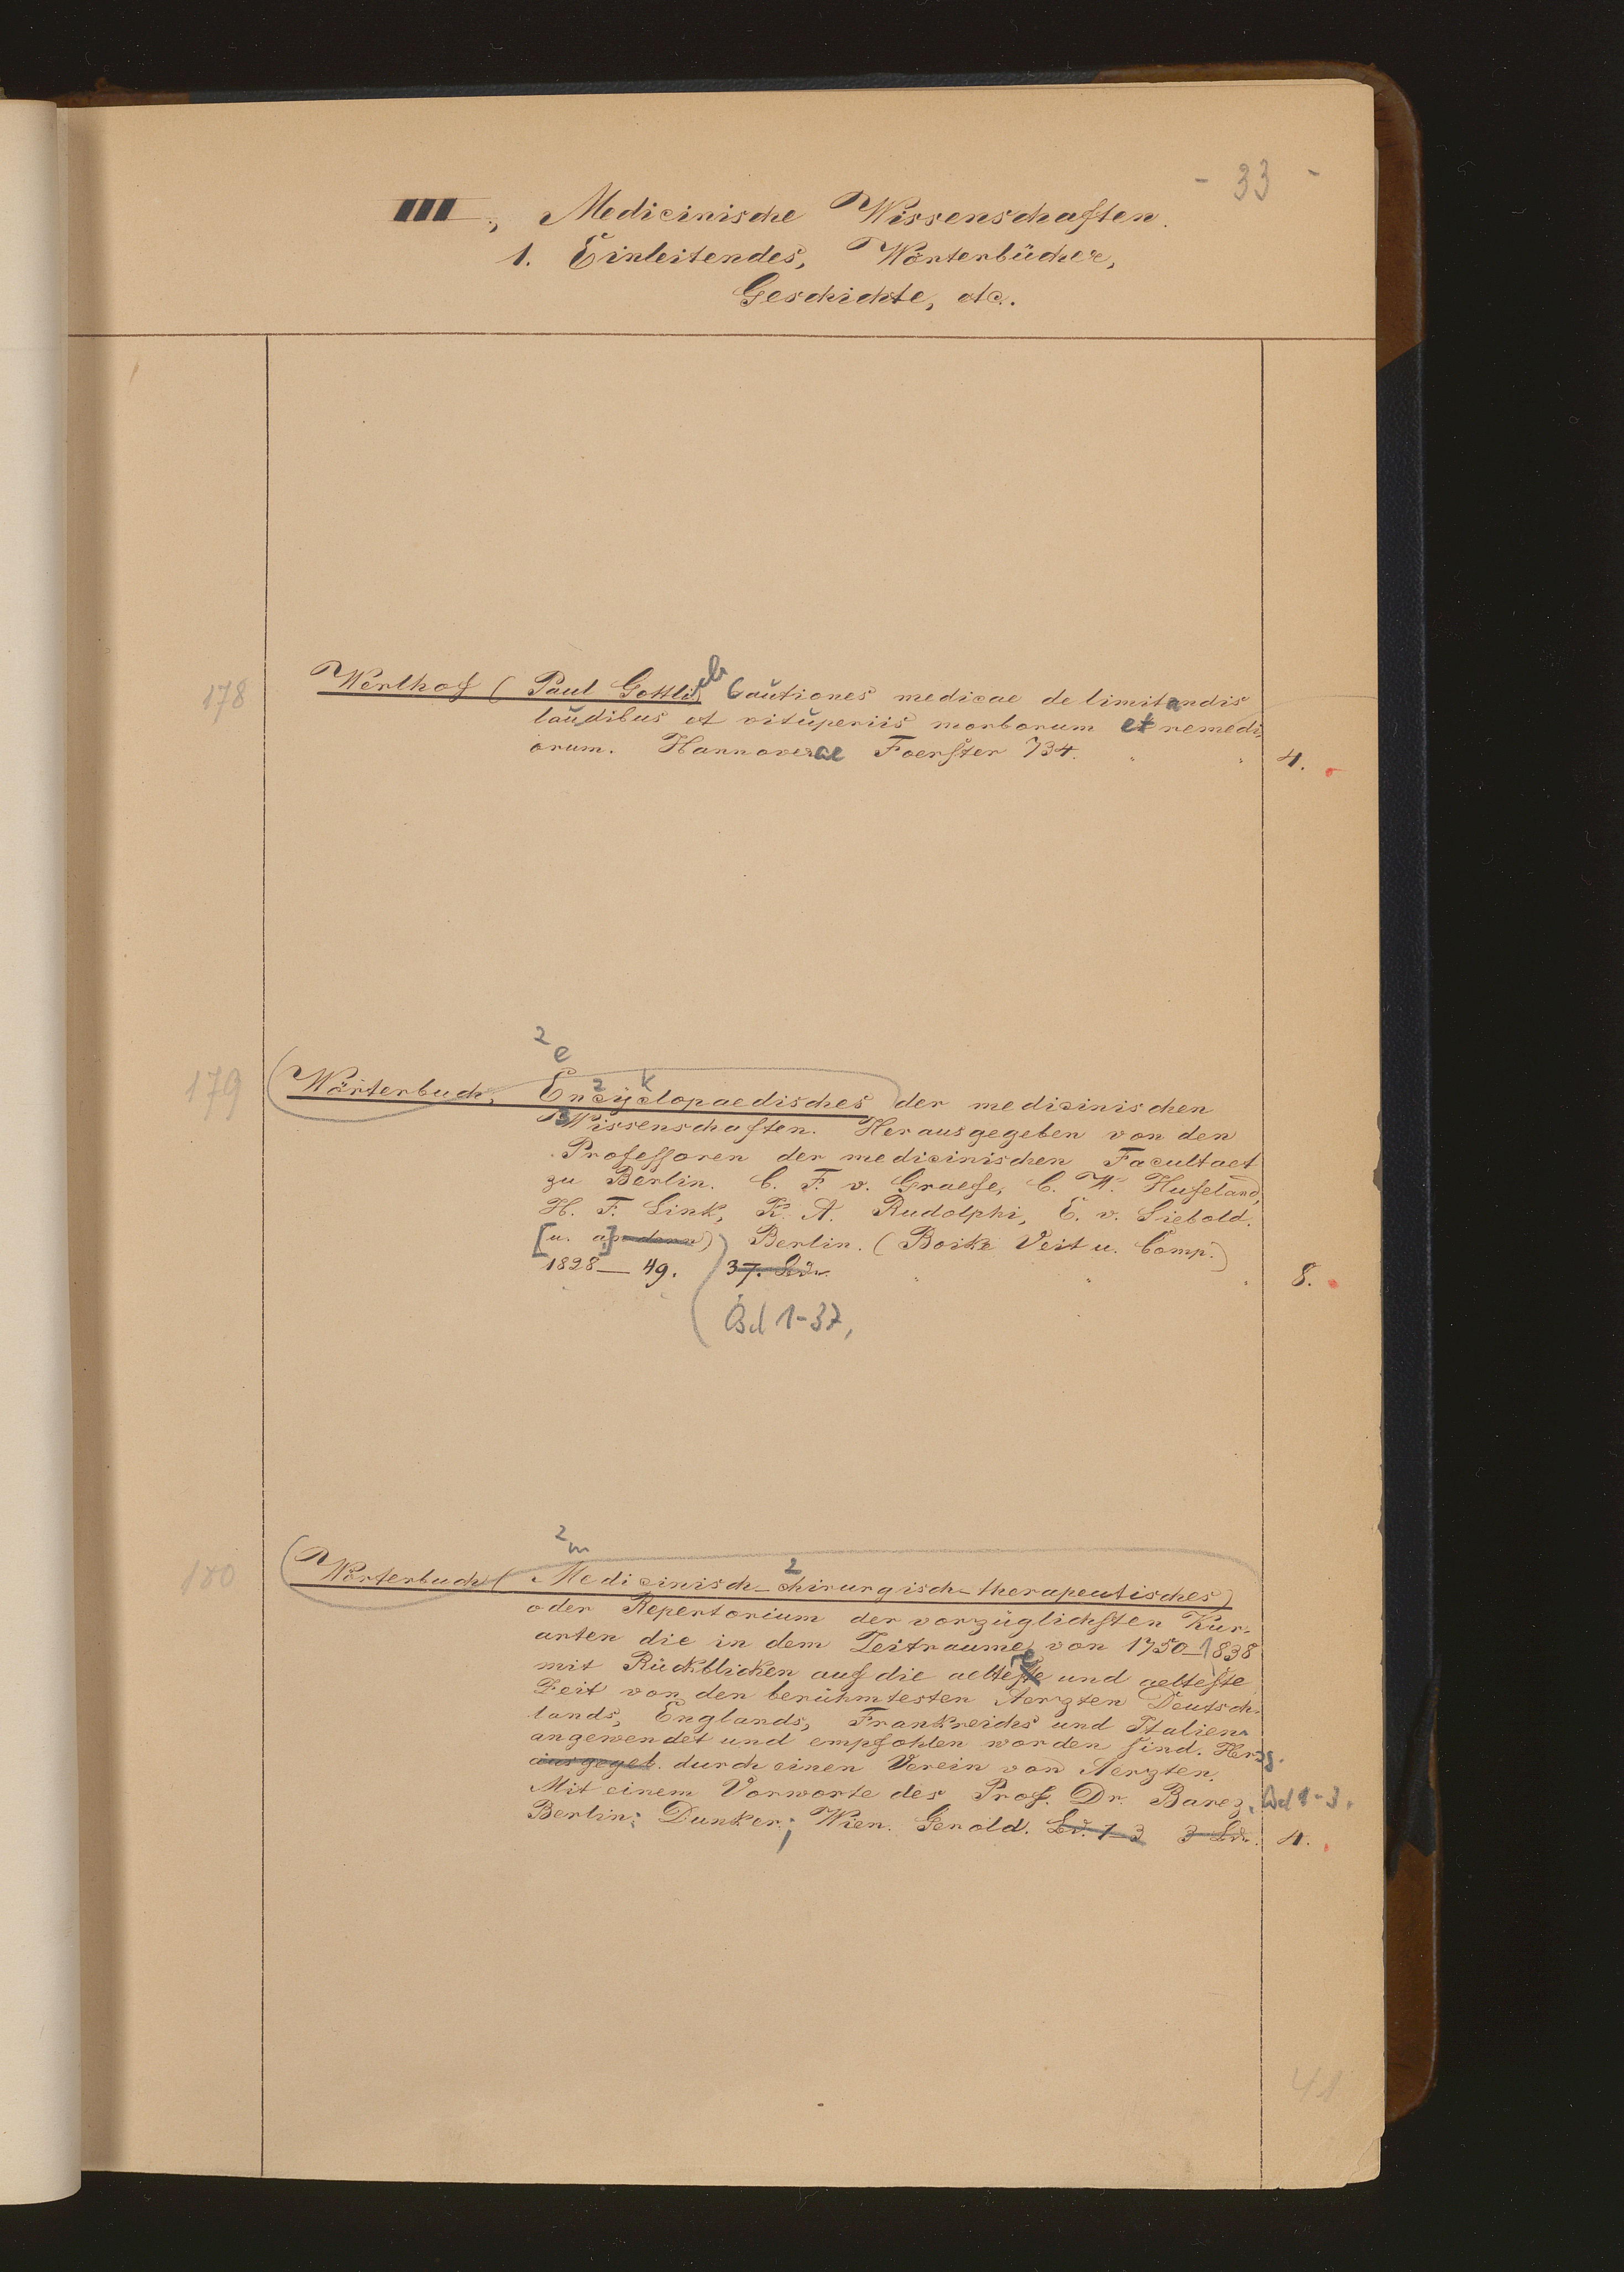 - 33 -
III., Medicinische Wissenschaften.
1. Einleitendes, Wörterbücher,
Geschichte, etc.
178
Werlhof (Paul Gottlieb) Cautiones medicae de limitandis
laudibus et vituperiis morborum et remedi-
orum. Hannoverae Foerster 734.
4.
179
2 e
Wörterbuch, Encyclopaedisches der medicinischen
z k
Wissenschaften. Herausgegeben von den
Professoren der medicinischen Facultaet
zu Berlin. C. F. v. Graefe, C. W. Hufeland,
H. F. Link, K. A. Rudolphi, E. v. Siebold.
[u. a.] Berlin. (Boike Veit u. Comp.)
1828 — 49. 37. Bde.
8.
Bd 1-37,
180
2 m
Wörterbuch (Medicinisch-chirurgisch-therapeutisches)
2
oder Repertorium der vorzüglichsten Kur-
arten die in dem Zeitraume von 1750-1838
mit Rückblicken auf die aeltere und aelteste
Zeit von den berühmtesten Aerzten Deutsch-
lands, Englands, Frankreichs und Italiens
angewendet und empfohlen worden sind. Hersg.
ausgegeb. durch einen Verein von Aerzten.
Mit einem Vorworte des Prof. Dr. Barez. Bd 1-3.
Berlin; Dunker; Wien. Gerold. Bd. 1-3 3 Bde. 4.
41